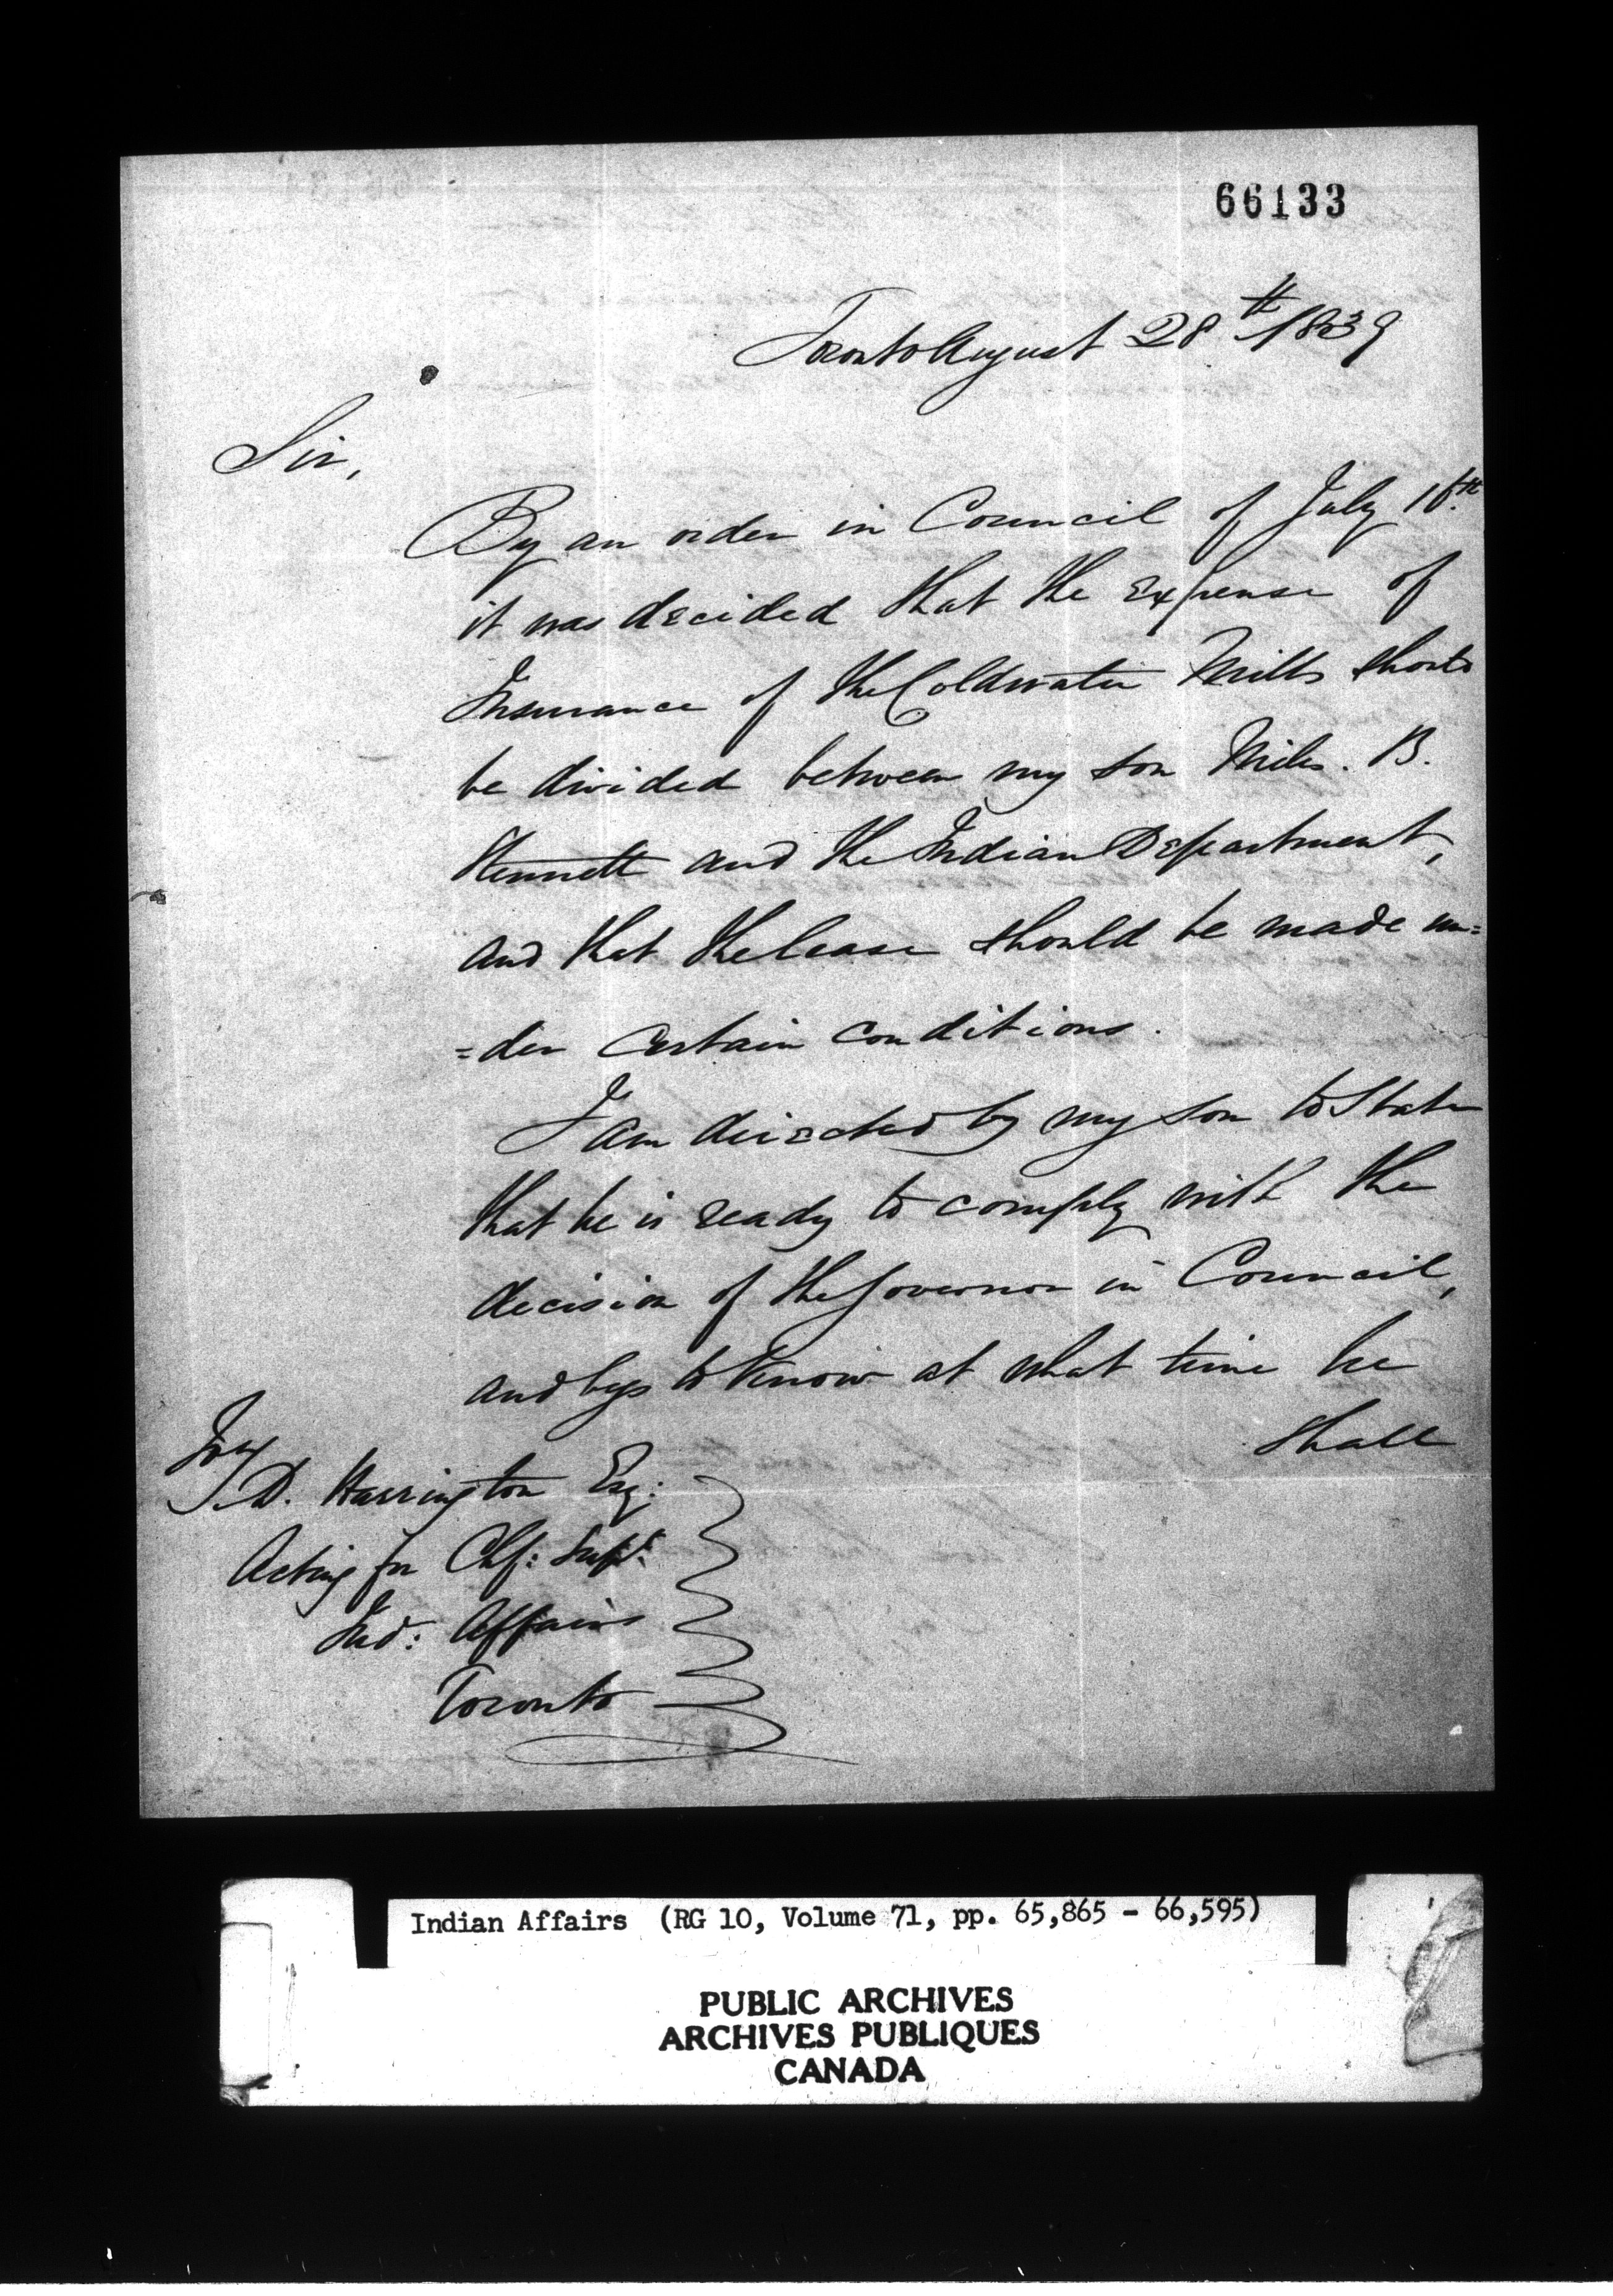 66133
Toronto August 28th 1839
Sir,
By an order in Council of July 16th
it was decided that the expense of
Insurance of the Coldwater Mills should
be divided between my son Miles. B.
Hennett and the Indian Department,
and that the lease should be made un=
=der certain conditions.
I am directed by my son to State
that he is ready to comply with the
decision of the Governor in Council,
and begs to know at what time he
shall
D. Harrington Esq:
Acting for Chf: Supt:
Ind: Affairs
Toronto
Indian Affairs (RG 10, Volume 71, pp. 65,865 - 66,595)
PUBLIC ARCHIVES
ARCHIVES PUBLIQUES
CANADA